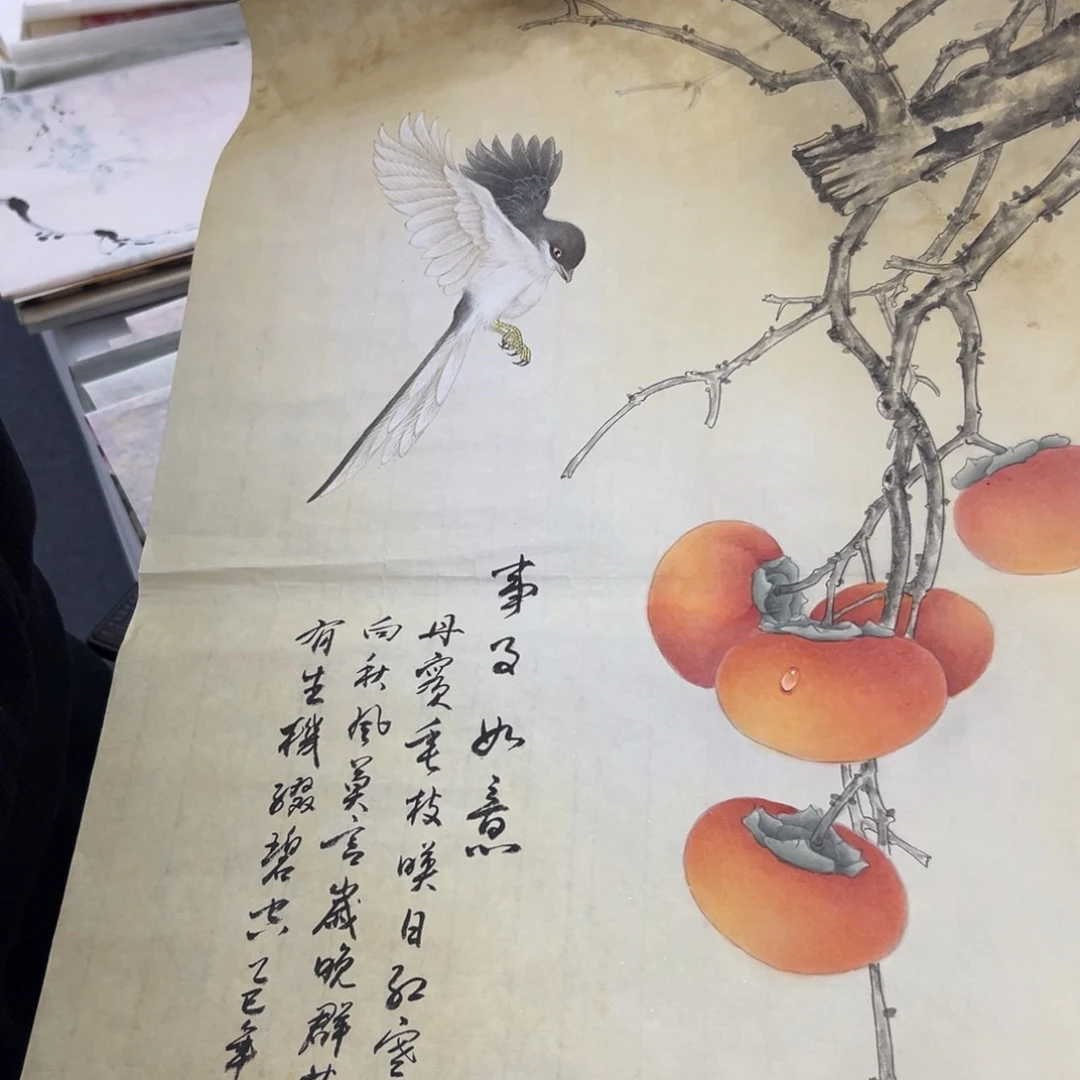 事事如意
丹實垂枝暎日紅寒
向秋風莫言歲晚群
有生機綴碧空乙巳年